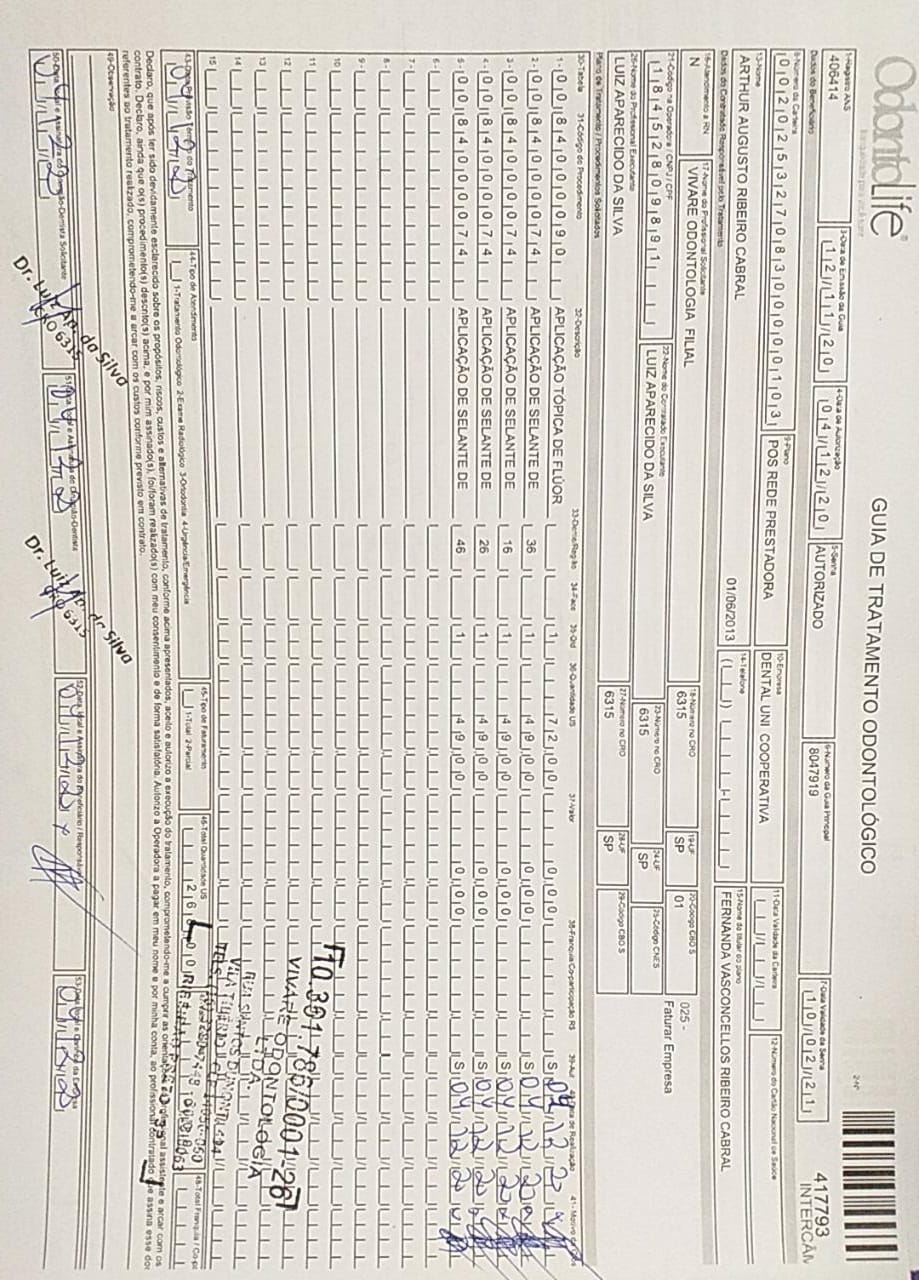 OdontoLife
GUIA DE TRATAMENTO ODONTOLÓGICO
2-Nº
417793
INTERCÂM
1-Registro ANS
406414
3-Data de Emissão da Guia
12/11/20
4-Data de Autorização
04/12/20
5-Senha
AUTORIZADO
6-Número da Guia Principal
8047919
7-Data Validade da Senha
10/02/21
Dados do Beneficiário
8-Número da Carteira
00202532708300000103
9-Plano
POS REDE PRESTADORA
10-Empresa
DENTAL UNI COOPERATIVA
11-Data Validade da Carteira
12-Número do Cartão Nacional de Saúde
13-Nome
ARTHUR AUGUSTO RIBEIRO CABRAL
01/06/2013
14-Telefone
15-Nome do titular do plano
FERNANDA VASCONCELLOS RIBEIRO CABRAL
Dados do Contratado Responsável pelo Tratamento
16-Atendimento a RN
N
17-Nome do Profissional Solicitante
VIVARE ODONTOLOGIA FILIAL
18-Número no CRO
6315
19-UF
SP
20-Código CBO S
01
025 -
Faturar Empresa
21-Código na Operadora / CNPJ / CPF
18452809891
22-Nome do Contratado Executante
LUIZ APARECIDO DA SILVA
23-Número no CRO
6315
24-UF
SP
25-Código CNES
26-Nome do Profissional Executante
LUIZ APARECIDO DA SILVA
27-Número no CRO
6315
28-UF
SP
29-Código CBO S
Plano de Tratamento / Procedimentos Solicitados
30-Tabela 31-Código do Procedimento 32-Descrição 33-Dente/Região 34-Face 35-Qtd 36-Quantidade US 37-Valor 38-Franquia Co-participação R$ 39-Aut 40-Data de Realização
1- 00 84000090 APLICAÇÃO TÓPICA DE FLÚOR 1 72,00 0,00 S 04/12/20
2- 00 84000074 APLICAÇÃO DE SELANTE DE 36 1 49,00 0,00 S 04/12/20
3- 00 84000074 APLICAÇÃO DE SELANTE DE 16 1 49,00 0,00 S 04/12/20
4- 00 84000074 APLICAÇÃO DE SELANTE DE 26 1 49,00 0,00 S 04/12/20
5- 00 84000074 APLICAÇÃO DE SELANTE DE 46 1 49,00 0,00 S 04/12/20
6-
7-
8-
9-
10
11
12
13
14
15
70.301.786/0001-26
VIVARE ODONTOLOGIA
LTDA
43-Data Previsão Término do Tratamento
04/12/20
44-Tipo de Atendimento
1-Tratamento Odontológico 2-Exame Radiológico 3-Ortodontia 4-Urgência/Emergência
45-Tipo de Faturamento
1-Total 2-Parcial
46-Total Quantidade US
268,00
48-Total Franquia / Co-p
Declaro, que após ter sido devidamente esclarecido sobre os propósitos, riscos, custos e alternativas de tratamento, conforme acima apresentados, aceito e autorizo a execução do tratamento, comprometendo-me a cumprir as orientações do profissional assistente e arcar com os
contrato. Declaro, ainda que o(s) procedimento(s) descrito(s) acima, e por mim assinado(s), foi/foram realizado(s) com meu consentimento e de forma satisfatória. Autorizo a Operadora a pagar em meu nome e por minha conta, ao profissional contratado que assina esse do
referentes ao tratamento realizado, comprometendo-me a arcar com os custos conforme previsto em contrato.
49-Observação
50-Data, local e Assinatura do Cirurgião-Dentista Solicitante
04/12/20
Dr. Luiz Ap. da Silva
CRO 6315
51-Data, local e Assinatura do Cirurgião-Dentista
04/12/20
Dr. Luiz Ap. da Silva
CRO 6315
52-Data, local e Assinatura do Beneficiário / Responsável
04/12/20
04/12/20